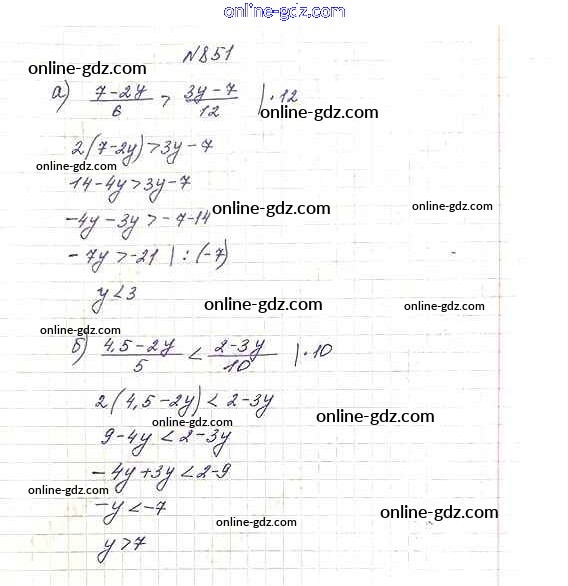 www.online-gdz.com
N851
online-gdz.com
а) (7-2y)/6 > (3y-7)/12 |·12
online-gdz.com
2(7-2y)>3y-7
online-gdz.com
14-4y>3y-7
online-gdz.com online-gdz.com
-4y-3y>-7-14
-7y>-21 |:(-7)
y<3
online-gdz.com online-gdz.com
online-gdz.com
б) (4,5-2y)/5 < (2-3y)/10 |·10
2(4,5-2y)<2-3y
online-gdz.com
online-gdz.com
9-4y<2-3y
-4y+3y<2-9
online-gdz.com
-y<-7
online-gdz.com
online-gdz.com
y>7